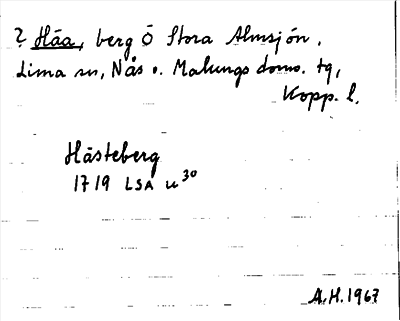 ? Håa, berg Ö Stora Almsjön,
Lima sn, Nås o. Malungs doms. tg,
Kopp. l.
Hästeberg
1719 LSA u 30
A.H. 1967